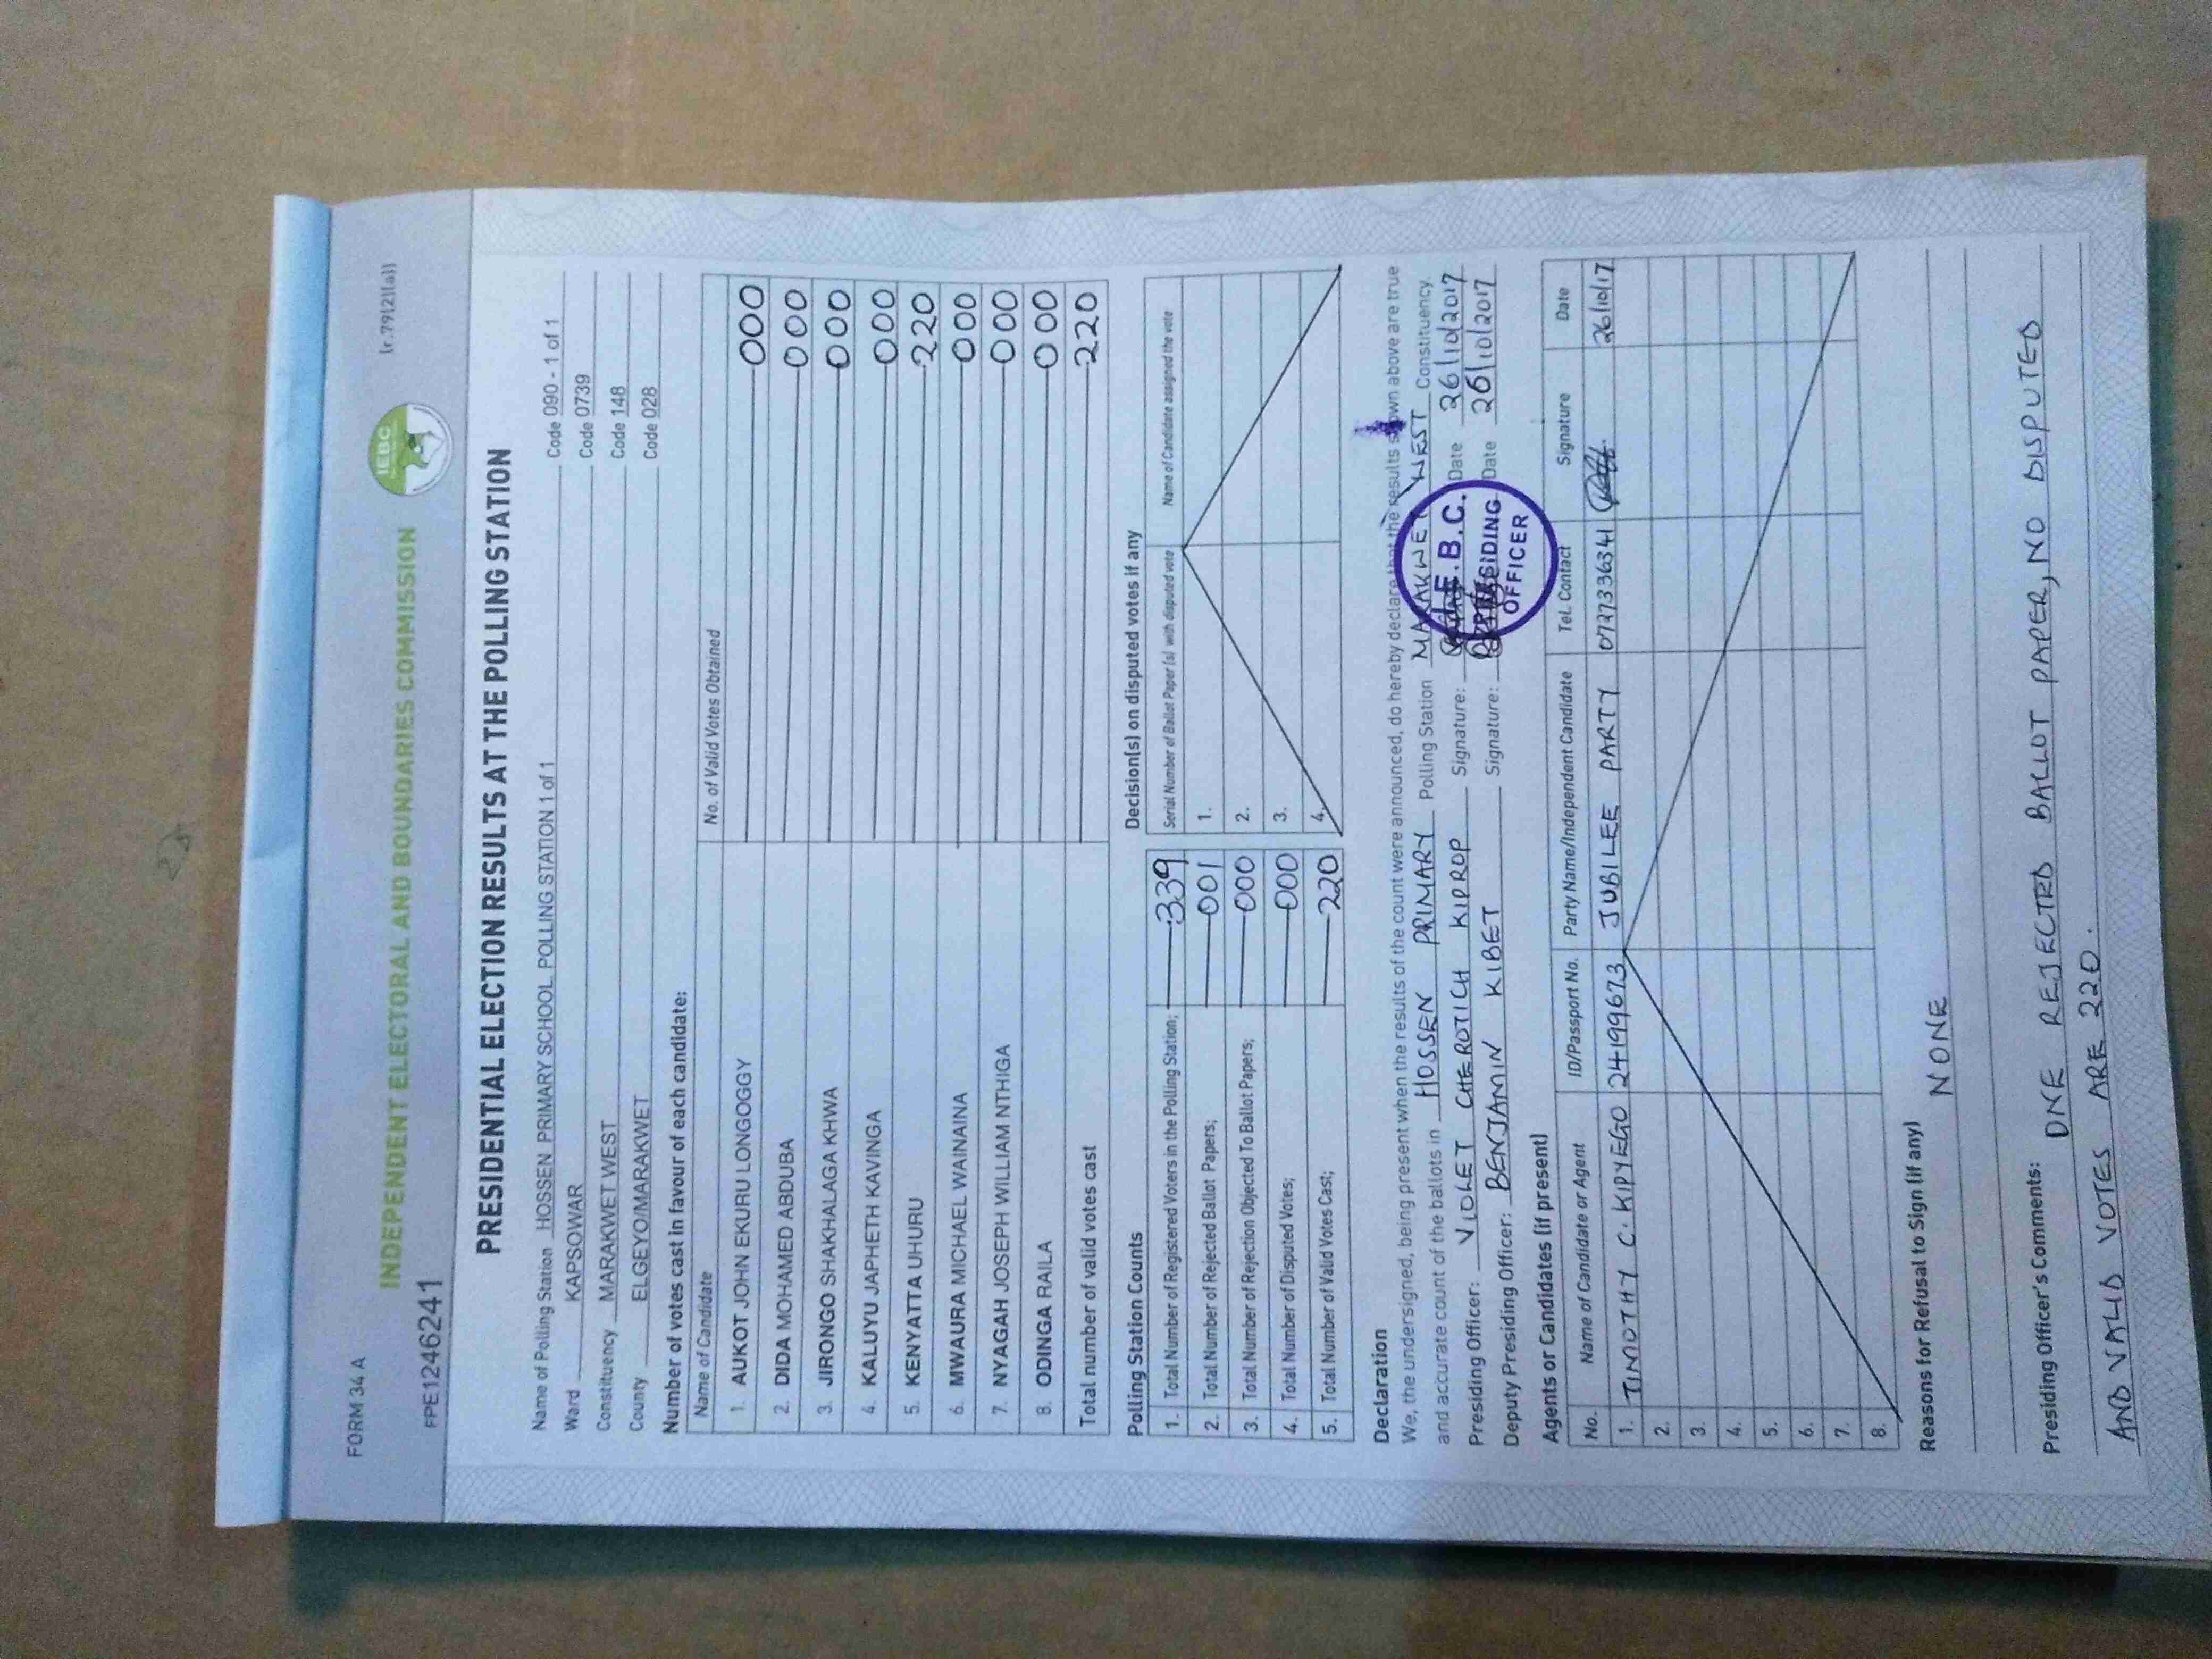 FORM 34 A
[r.79(2)(a)]
INDEPENDENT ELECTORAL AND BOUNDARIES COMMISSION
IEBC
FPE1246241
PRESIDENTIAL ELECTION RESULTS AT THE POLLING STATION
Name of Polling Station HOSSEN PRIMARY SCHOOL POLLING STATION 1 of 1 Code 090 - 1 of 1
Ward KAPSOWAR Code 0739
Constituency MARAKWET WEST Code 148
County ELGEYO/MARAKWET Code 028
Number of votes cast in favour of each candidate:
Name of Candidate No. of Valid Votes Obtained
1. AUKOT JOHN EKURU LONGOGGY 000
2. DIDA MOHAMED ABDUBA 000
3. JIRONGO SHAKHALAGA KHWA 000
4. KALUYU JAPHETH KAVINGA 000
5. KENYATTA UHURU 220
6. MWAURA MICHAEL WAINAINA 000
7. NYAGAH JOSEPH WILLIAM NTHIGA 000
8. ODINGA RAILA 000
Total number of valid votes cast 220
Polling Station Counts
1. Total Number of Registered Voters in the Polling Station; 339
2. Total Number of Rejected Ballot Papers; 001
3. Total Number of Rejection Objected To Ballot Papers; 000
4. Total Number of Disputed Votes; 000
5. Total Number of Valid Votes Cast; 220
Decision(s) on disputed votes if any
Serial Number of Ballot Paper (s) with disputed vote Name of Candidate assigned the vote
1.
2.
3.
4.
Declaration
We, the undersigned, being present when the results of the count were announced, do hereby declare that the results shown above are true
and accurate count of the ballots in HOSSEN PRIMARY Polling Station MARAKWET WEST Constituency.
Presiding Officer: VIOLET CHEROTICH KIPROP Signature: Date 26/10/2017
Deputy Presiding Officer: BENJAMIN KIBET Signature: Date 26/10/2017
I.E.B.C.
PRESIDING
OFFICER
Agents or Candidates (if present)
No. Name of Candidate or Agent ID/Passport No. Party Name/Independent Candidate Tel. Contact Signature Date
1. TIMOTHY C. KIPYEGO 24199673 JUBILEE PARTY 0727336341 26/10/17
2.
3.
4.
5.
6.
7.
8.
Reasons for Refusal to Sign (if any)
NONE
Presiding Officer's Comments: ONE REJECTED BALLOT PAPER, NO DISPUTED
AND VALID VOTES ARE 220.